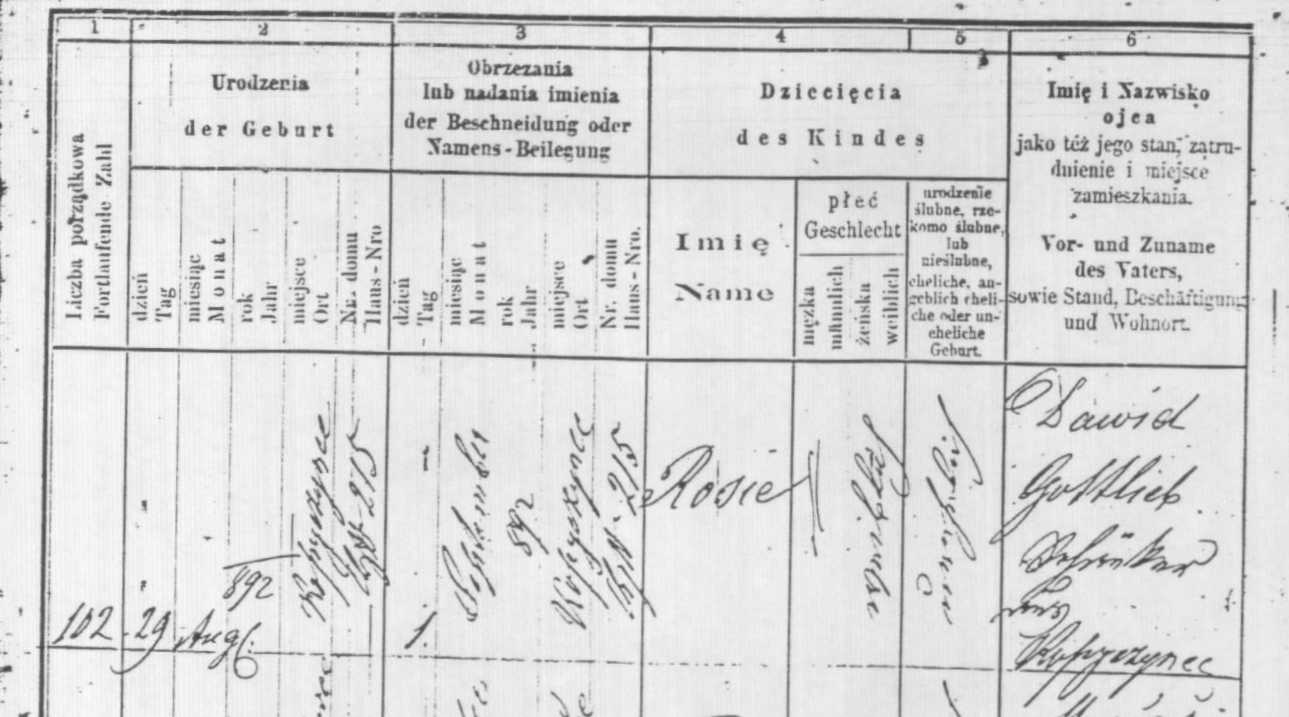 1
2
3
4
5
6
Liczba porządkowa
Fortlaufende Zahl
Urodzenia
der Geburt
dzień
Tag
miesiąc
Monat
rok
Jahr
miejsce
Ort
Nr. domu
Haus-Nro
Obrzezania
lub nadania imienia
der Beschneidung oder
Namens-Beilegung
dzień
Tag
miesiąc
Monat
rok
Jahr
miejsce
Ort
Nr. domu
Haus-Nro.
Dziecięcia
des Kindes
Imię
Name
płeć
Geschlecht
męzka
männlich
żeńska
weiblich
urodzenie
ślubne, rze-
komo ślubne,
lub
nieślubne,
eheliche, an-
geblich eheli-
che oder un-
eheliche
Geburt.
Imię i Nazwisko
ojca
jako też jego stan, zatru-
dnienie i miejsce
zamieszkania.
Vor- und Zuname
des Vaters,
sowie Stand, Beschäftigung
und Wohnort.
102
29
Aug.
892
Kopyczynce
275
1.
September
892
Kopyczynce
215
Rosie
Dawid
Gottlieb
aus
Kopyczynce